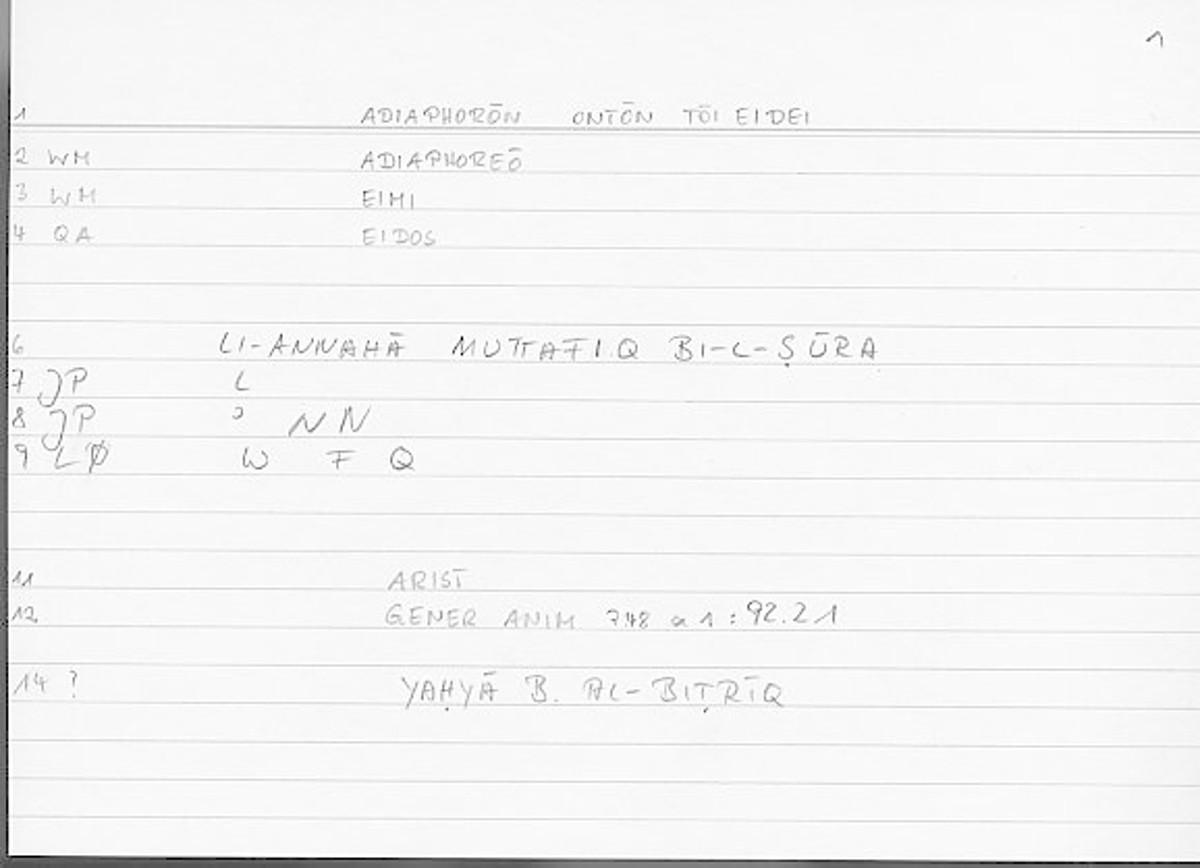 1
1 ADIAPHORŌN ONTŌN TŌI EIDEI
2 WM ADIAPHOREŌ
3 WM EIMI
4 QA EIDOS
6 LI-ANNAHĀ MUTTAFIQ BI-L-ṢŪRA
7 JP L
8 JP ʾ NN
9 LØ W F Q
11 ARIST
12 GENER ANIM 748 a 1 : 92.21
14 ? YAḤYĀ B. AL-BIṬRĪQ